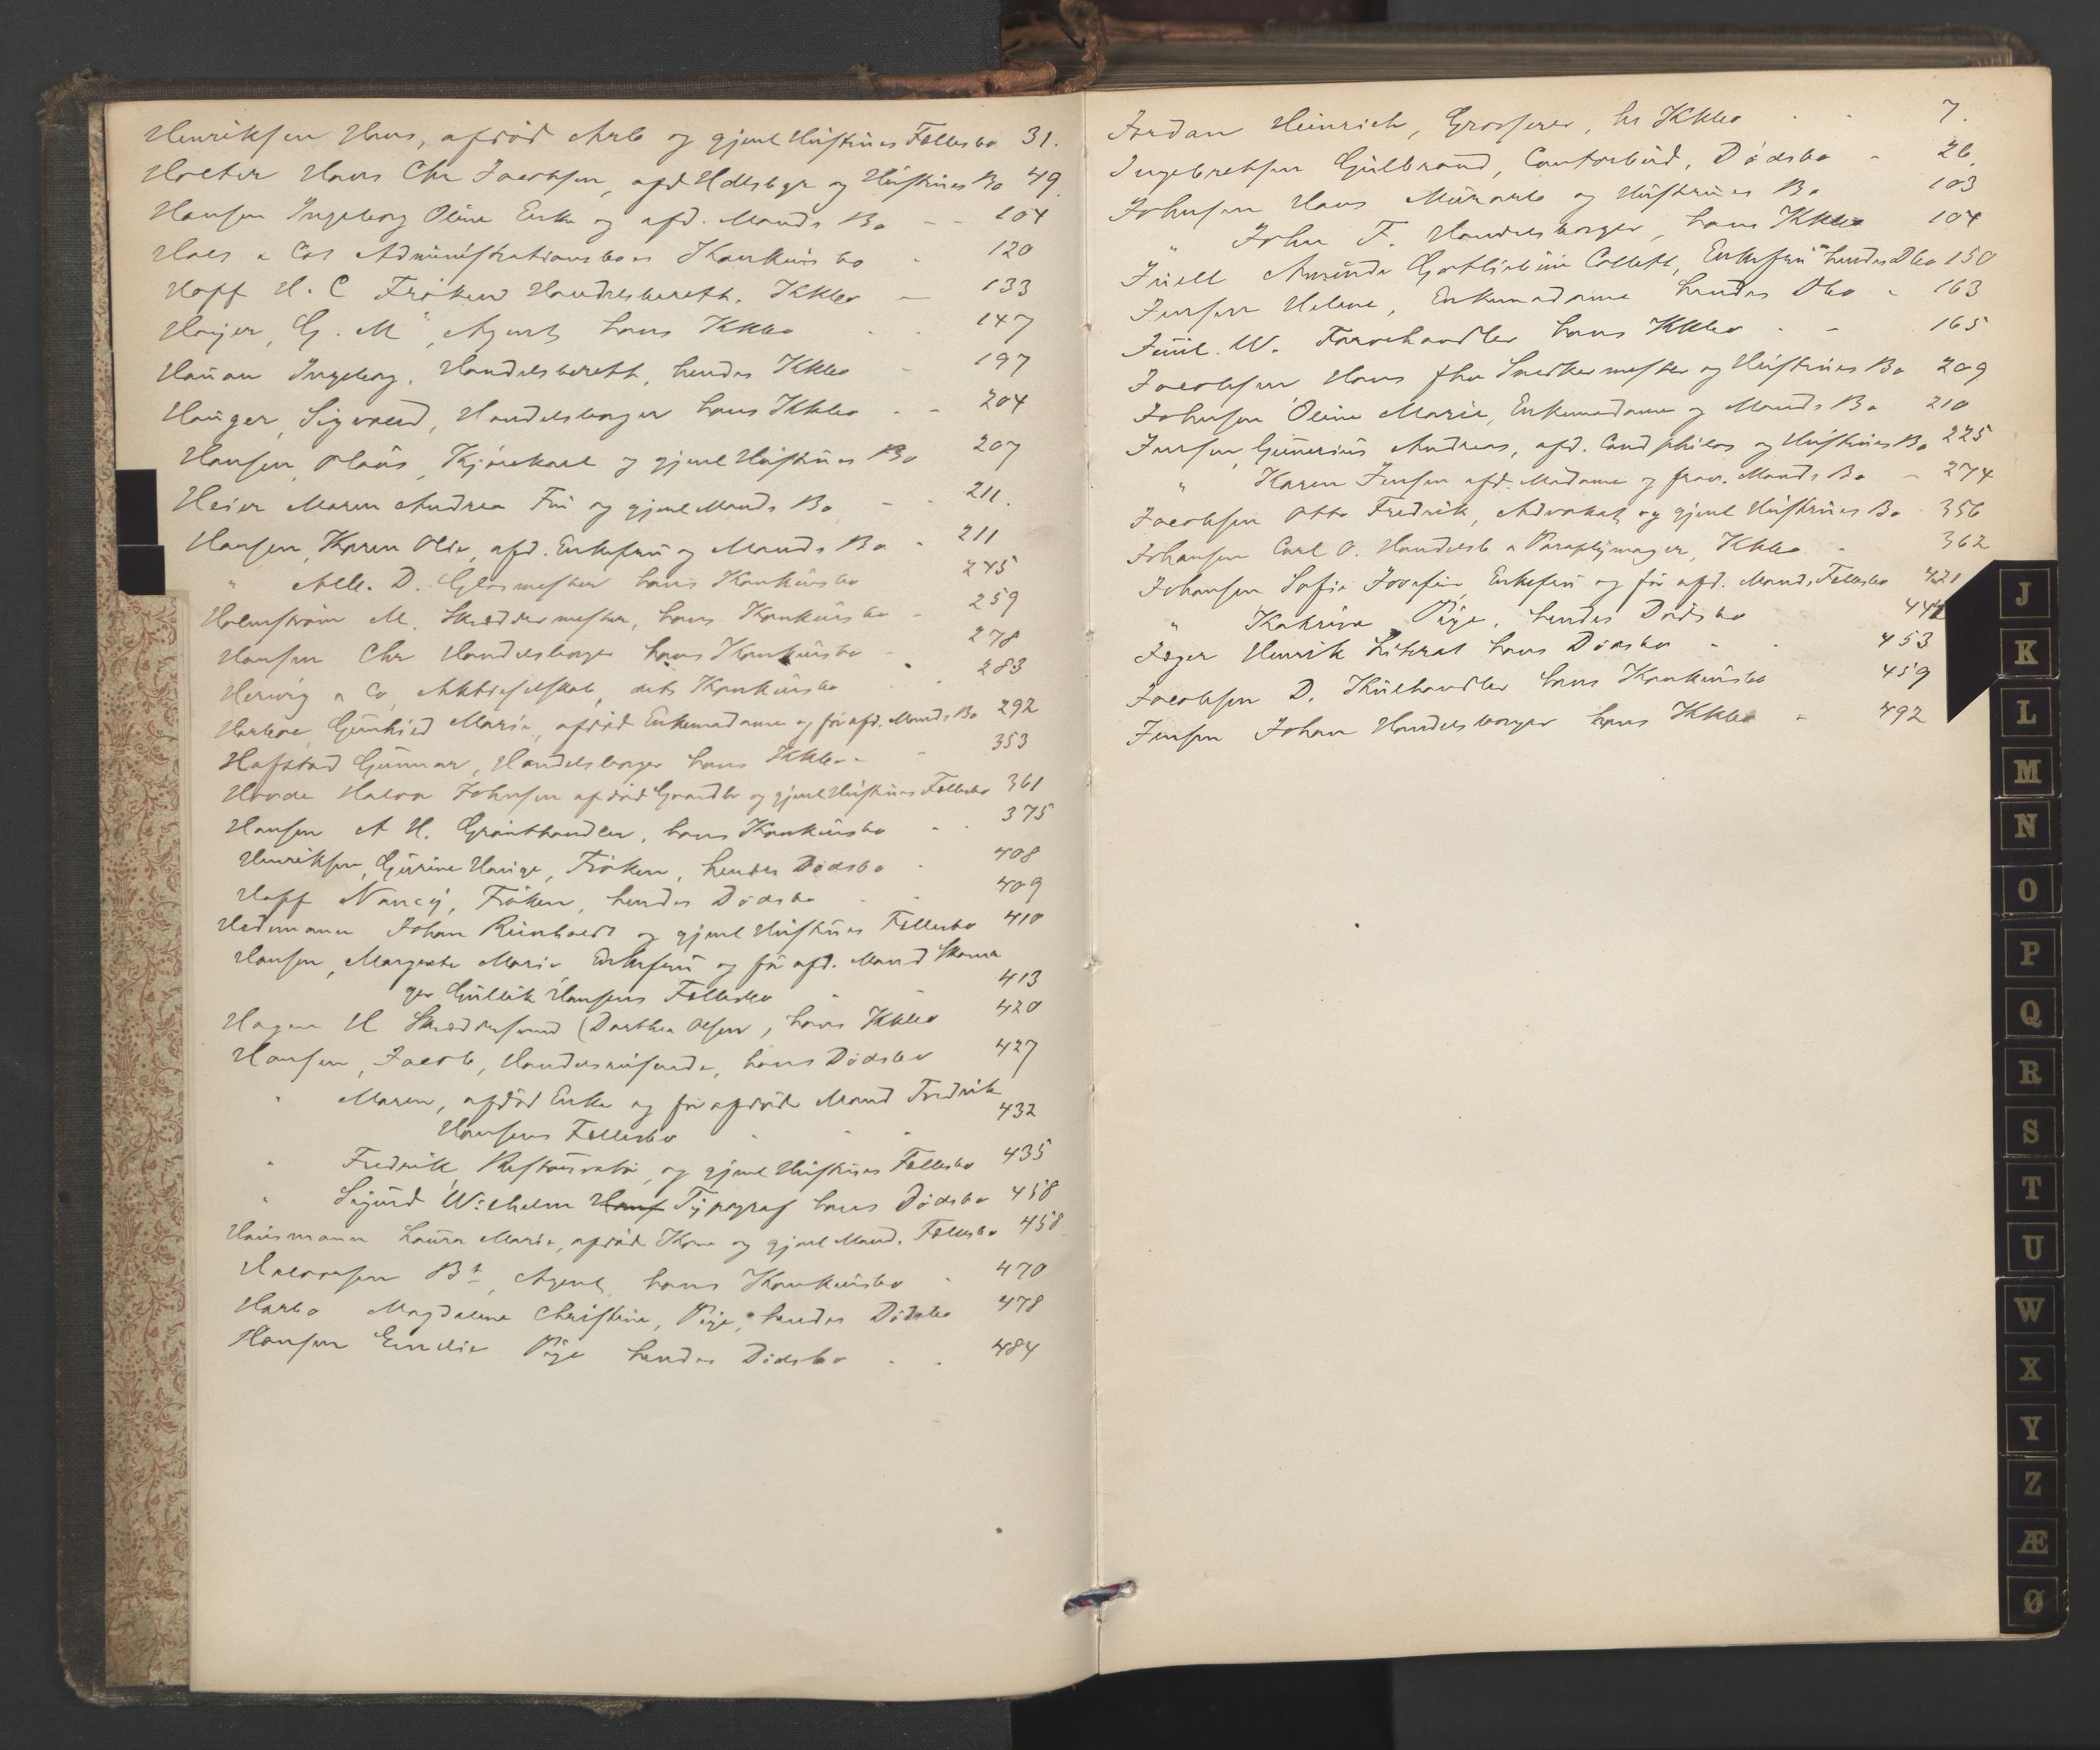 Henriksen Hans, afdød Arb og gjenl Hustrues Fællesbo 31.
Holter Hans Chr Jacobsen, afd Hdlsbgr og Hustrues Bo 49
Hansen Ingeborg Oline Enke og afd. Mands Bo - - 104
Hals & Cos Administrationsboes Konkursbo - 120
Hopff H. C Frøken Handelsberett. Kkbo - 133
Høyer, G. M, Agent, hans Kkbo - - 147
Hauan Ingeborg, Handelsberett, hendes Kkbo - 197
Hauger, Sigvard, Handelsborger hans Kkbo - - 204
Hansen Olaus, Kjørekarl og gjenl Hustrues Bo 207
Heier Maren Andrea Fru og gjenl Mands Bo - - 211.
Hansen, Karen Olse, afd. Enkefru og Mands Bo - 211
" Alb. D. Glasmester hans Konkursbo 245
Holmstrøm M. Skreddermester, hans Konkursbo - 259
Hansen Chr Handelsborger hans Konkursbo - 278
Herwig & Co, Aktieselskab, dets Konkursbo - - 283
Harboe, Gunhild Marie, afdød Enkemadame og før afd. Mands Bo 292
Hafstad Gunnar, Handelsborger hans Kkbo - - 353
Hovde Halvor Johnsen afdød Grandb og gjenl Hustrues Fællesbo 361
Hansen A H. Grønthandler, hans Konkursbo - - 375
Henriksen, Gurine Hansine, Frøken, hendes Dødsbo - 408
Hopff Nancy, Frøken, hendes Dødsbo - - 409
Hedemann Johan Reinholdt og gjenl Hustrues Fællesbo 410
Hansen, Margrethe Marie Enkefru og før afd. Mand Skoma
ger Gullik Hansens Fællesbo - - 413
Hagen H Skreddersvend (Dorthea Olsen), hans Kkbo 420
Hansen, Jacob, Handelsreisende, hans Dødsbo 427
" Maren, afdød Enke og før afdøde Mand Fredrik
Hansens Fællesbo - - - 432
" Fredrik, Restauratør, og gjenl Hustrues Fællesbo 435
" Sigurd Wilhelm Hans Typograf hans Dødsbo 458
Hausmann Laura Marie, afdøde Kone og gjenl Mand. Fællesbo 458
Halvorsen Bt, Agent, hans Konkursbo - 470
Harbo Magdalene Christine, Pige, hendes Dødsbo 478
Hansen Emelie Pige hendes Dødsbo - - 484
Jordan Heinrich, Grosserer, hs Kkbo - - 7.
Ingebretsen Gulbrand, Contorbud, Dødsbo - 26.
Johnsen Hans Murarb og Hustrues Bo 103
" John F. Handelsborger, hans Kkbo 104
Juell Amunda Gottliebine Collett, Enkefru hendes Dbo 150
Jensen Helene, Enkemadame hendes Dbo - 163
Juul. W. Farvehandler hans Kkbo - - 165
Jacobsen Hans fhv Snedkermester og Hustrues Bo 209
Johnsen Oline Marie, Enkemadame og Mands Bo 210
Jensen, Gunerius Andreas, afd. Cand philos og Hustrues Bo 225
" Karen Jensen afd. Madame og frav. Mands Bo - 274
Jacobsen Otto Fredrik, Advokat, og gjenl Hustrues Bo 356
Johansen Carl O. Handelsb & Paraplymager, Kkbo - 362
Johansen Sofie Josefine Enkefru og før afd. Mands Fællesbo 421
" Katrine Pige, hendes Dødsbo 444
Jæger Henrik Literat hans Dødsbo - - 453
Jacobsen D. Kulhandler hans Konkursbo 459
Jensen Johan Handelsborger hans Kkbo - 492
J
K
L
M
N
O
P
Q
R
S
T
U
W
X
Y
Z
Æ
Ø